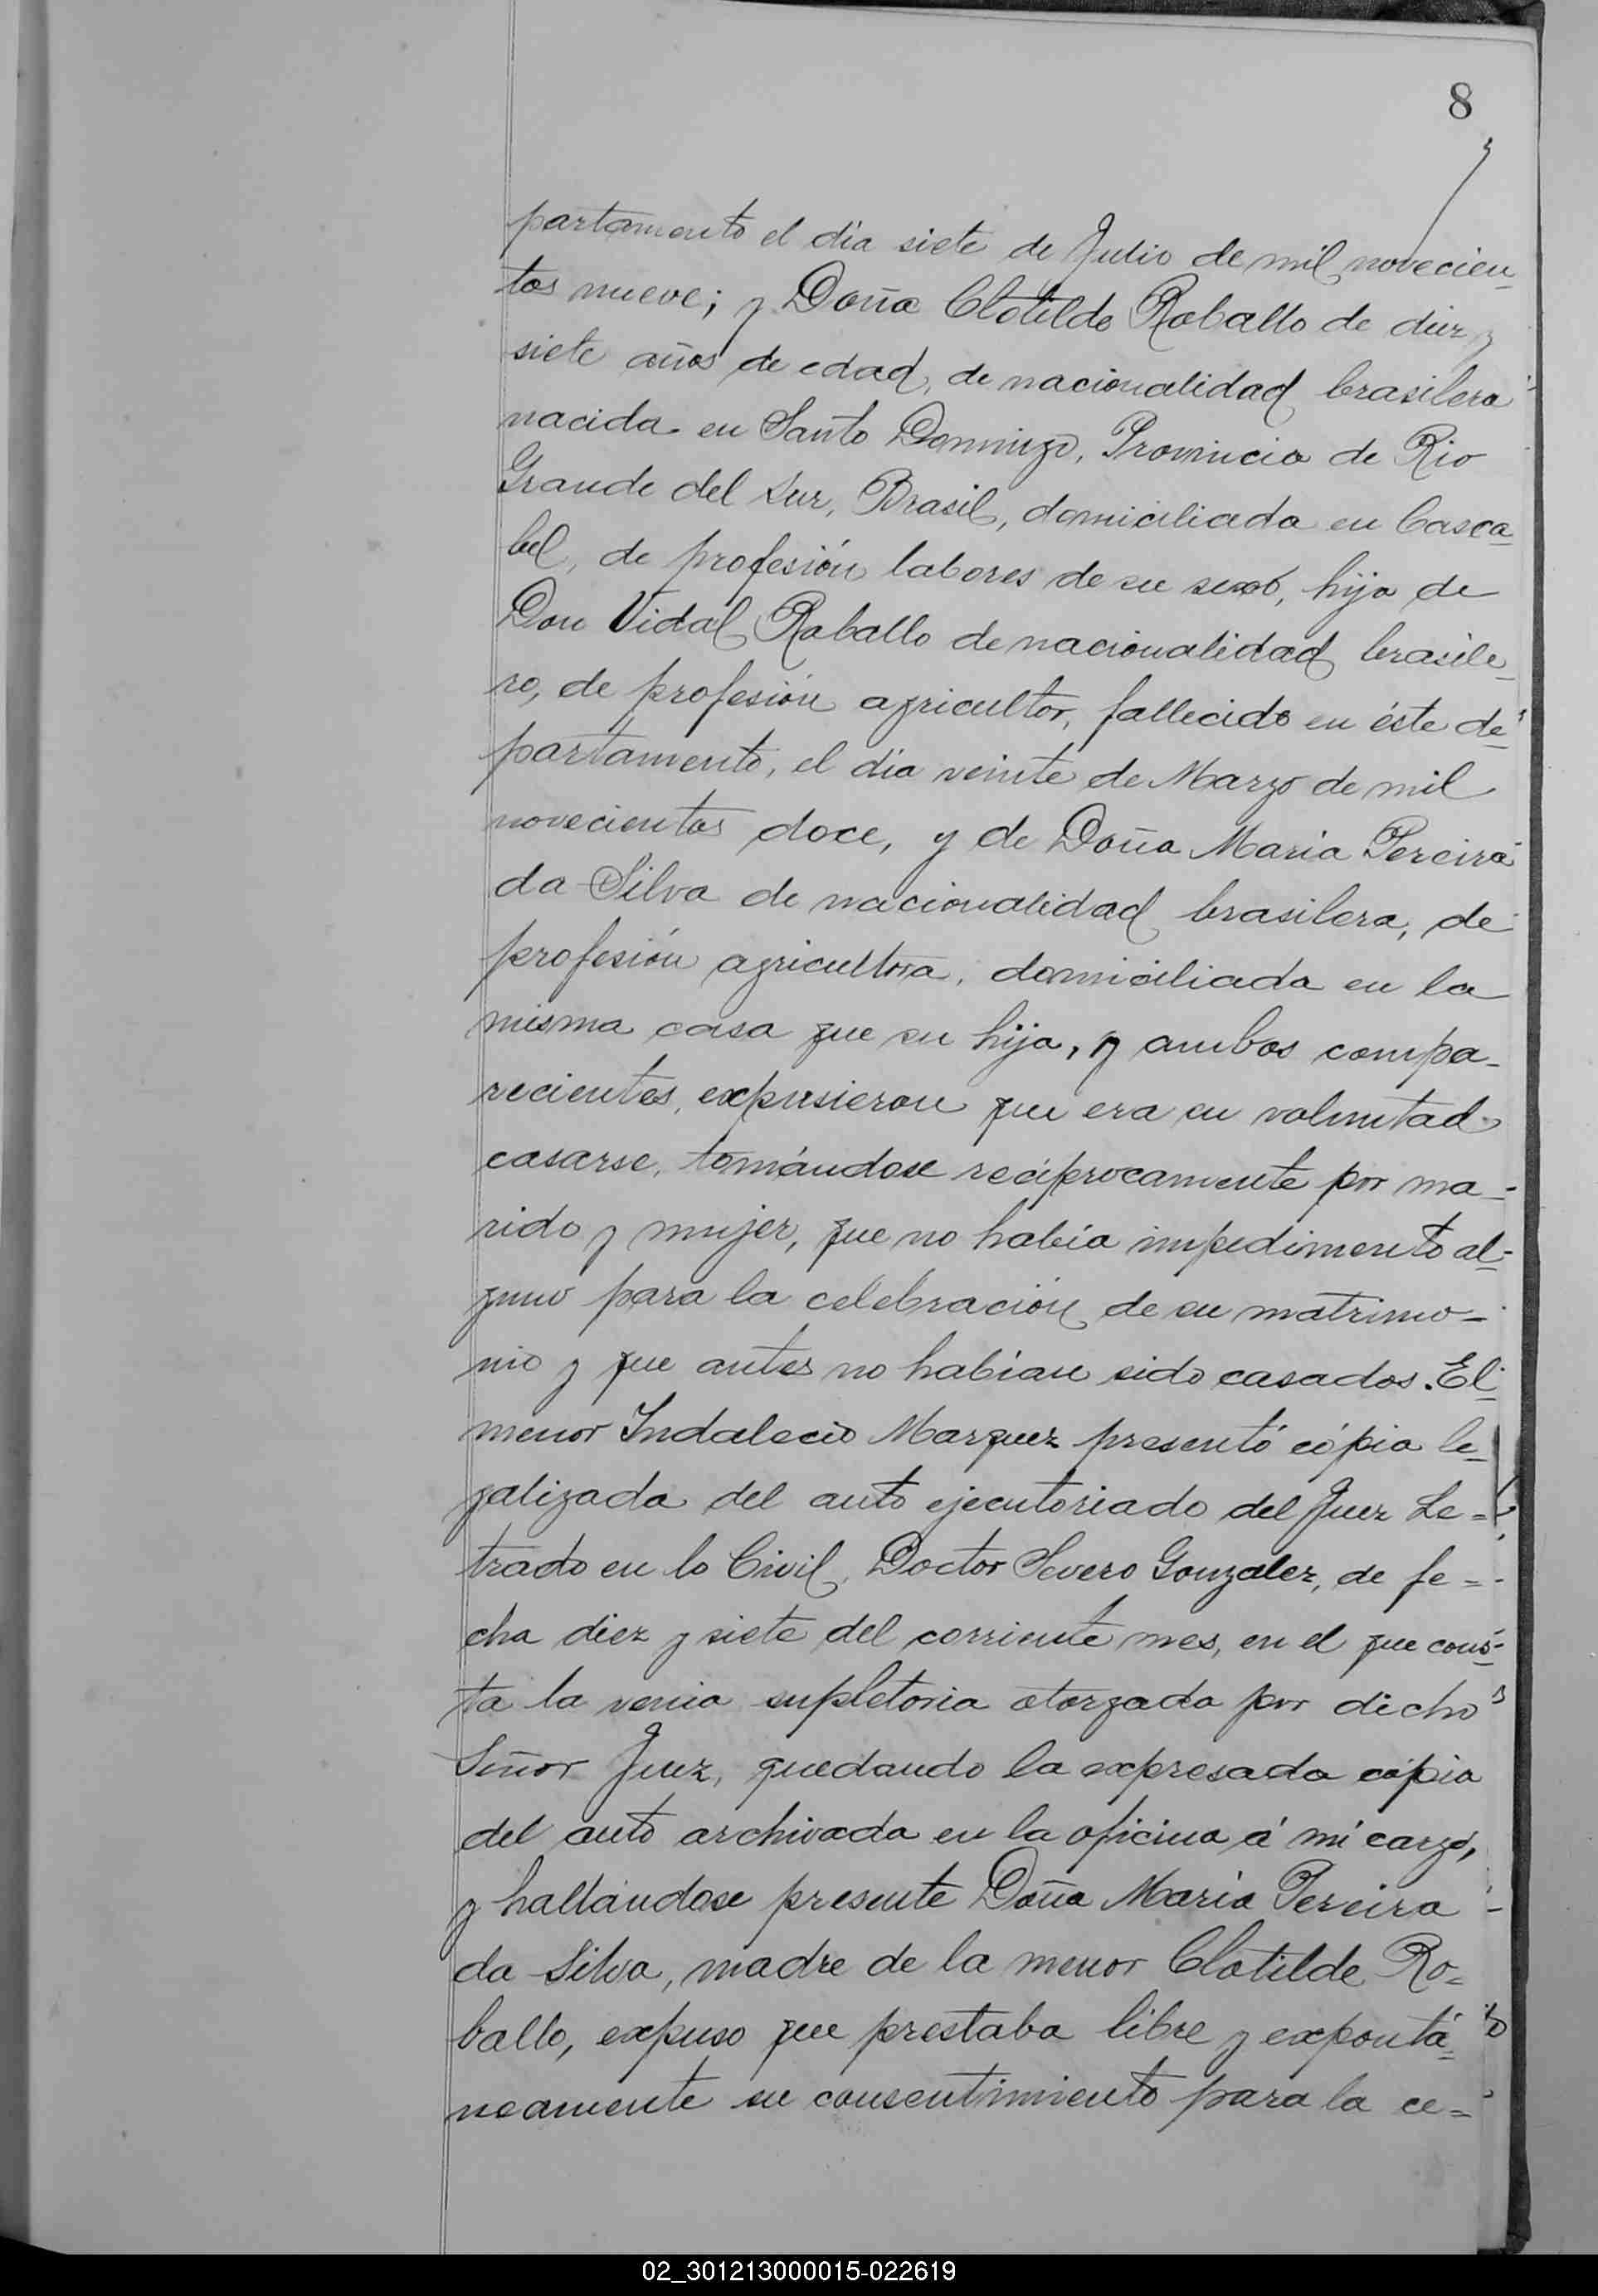 8
partamento el día siete de Julio de mil novecien-
tos nueve; y Doña Clotilde Roballo de diez y
siete años de edad, de nacionalidad brasilera
nacida en Santo Domingo, Provincia de Rio
Grande del Sur, Brasil, domiciliada en Casca-
bel, de profesión labores de su sexo, hija de
Don Vidal Roballo de nacionalidad brasile-
ro, de profesión agricultor, fallecido en éste de-
partamento, el día veinte de Marzo de mil
novecientos doce, y de Doña Maria Pereira
da Silva de nacionalidad brasilera, de
profesión agricultora, domiciliada en la
misma casa que su hija, y ambos compa-
recientes, expusieron que era su voluntad
casarse, tomándose recíprocamente por ma-
rido y mujer, que no había impedimento al-
guno para la celebración de su matrimo-
nio y que antes no habían sido casados. El
menor Indalecio Marquez presentó cópia le-
galizada del auto ejecutoriado del Juez Le-
trado en lo Civil, Doctor Severo Gonzalez, de fe-
cha diez y siete del corriente mes, en el que cons-
ta la venia supletoria otorgada por dicho
Señor Juez, quedando la expresada cópia
del auto archivada en la oficina á mi cargo,
y hallándose presente Doña Maria Pereira
da Silva, madre de la menor Clotilde Ro-
ballo, expuso que prestaba libre y expontá-
neamente su consentimiento para la ce-
02_301213000015-022619